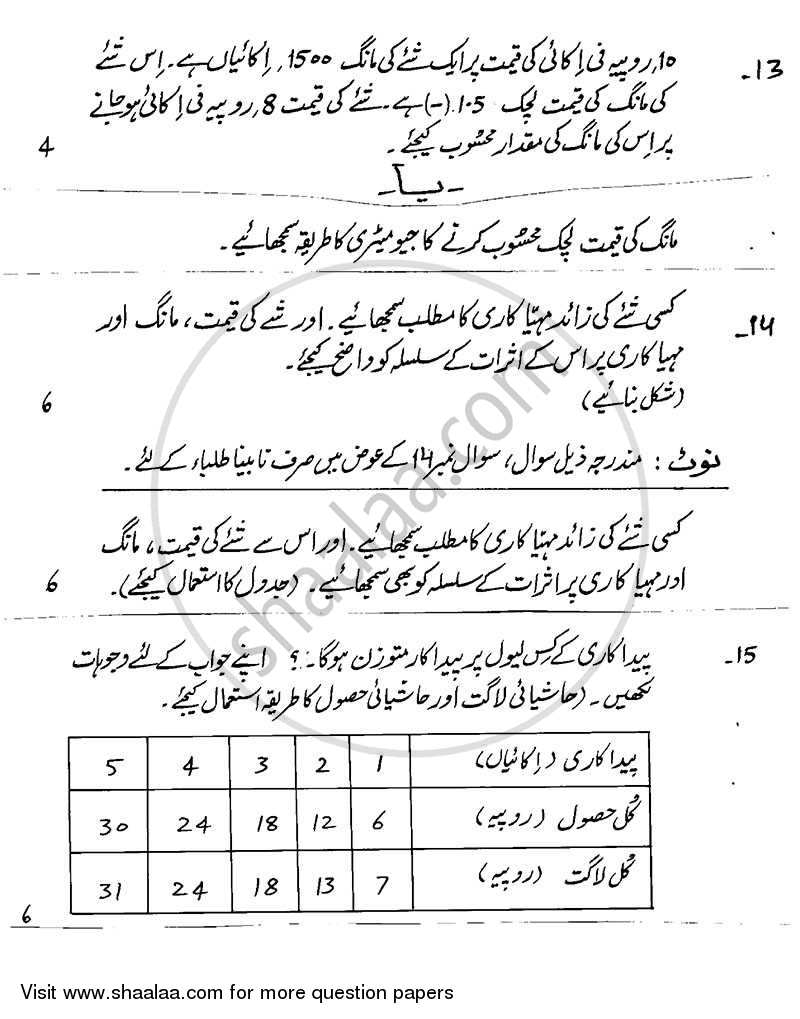 13- 10 روپیہ فی اِکائی کی قیمت پر ایک شئے کی مانگ 1500 اِکائیاں ہے۔ اِس شئے
کی مانگ کی قیمت لچک 1.5(-) ہے۔ شئے کی قیمت 8 روپیہ فی اِکائی ہو جانے
پر اِس کی مانگ کی مقدار محسوب کیجئے۔ 4
-یا-
مانگ کی قیمت لچک محسوب کرنے کا جیومیٹری کا طریقہ سمجھائیے۔
14- کسی شئے کی زائد مہیّا کاری کا مطلب سمجھائیے۔ اور شے کی قیمت، مانگ اور
مہیا کاری پر اس کے اثرات کے سلسلہ کو واضح کیجئے۔
(شکل بنائیے) 6
نوٹ: مندرجہ ذیل سوال، سوال نمبر 14 کے عوض میں صرف نابینا طلباء کے لئے۔
کسی شئے کی زائد مہیّا کاری کا مطلب سمجھائیے۔ اور اس سے شئے کی قیمت، مانگ
اور مہیا کاری پر اثرات کے سلسلہ کو بھی سمجھائیے۔ (جدول کا استعمال کیجئے)۔ 6
15- پیداکاری کے کِس لیول پر پیداکار متوزن ہوگا۔؟ اپنے جواب کے لئے وجوہات
لکھیں۔ (حاشیائی لاگت اور حاشیائی حصول کا طریقہ استعمال کیجئے۔
پیداکاری (اِکائیاں) 1 2 3 4 5
کُل حصول (روپیہ) 6 12 18 24 30
کُل لاگت (روپیہ) 7 13 18 24 31
6
shaalaa.com
Visit www.shaalaa.com for more question papers